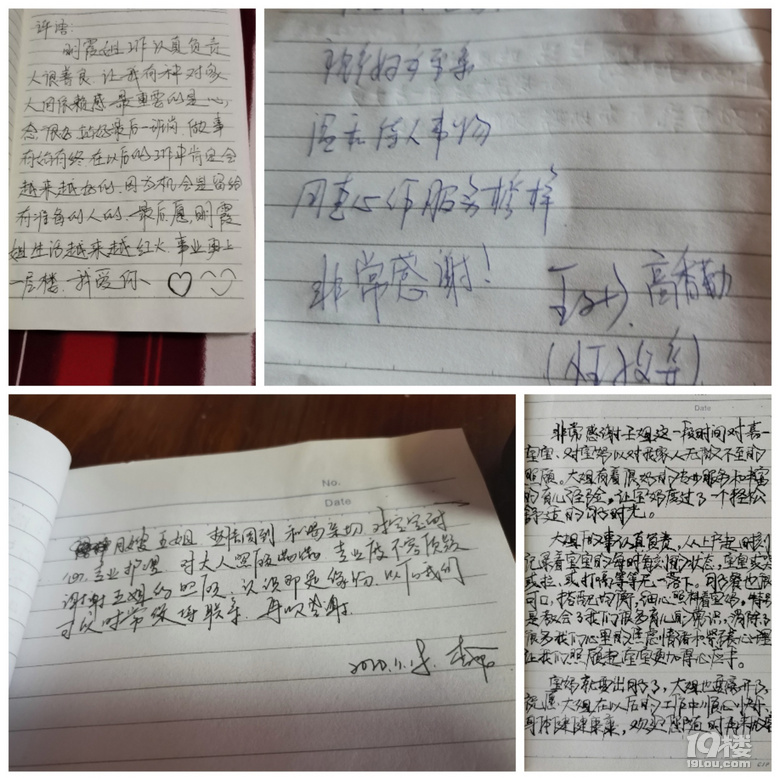 评语:
明霞姐工作认真负责
人很善良.让我有种对家
人间依赖感最重要的是心
态很好站好最后一班岗.做事
有始有终在以后的工作中肯定会
越来越好的.因为机会是留给
有准备的人的.最后愿,明霞
姐生活越来越红火.事业更上
一层楼.我爱你、♡
温和待人事物
用真心作服务榜样
非常感谢!
高香勤
No.
Date
月嫂王姐 和蔼亲切.对宝宝耐
心.专业护理 对大人照顾 专业度不容质疑
谢谢王姐的照顾,认识即是缘份.以后我们
可以时常保持联系.再次登谢.
2020.11.15.
Date
非常感谢王姐这一段时间对喜
宝宝、对宝妈以对我家人无微不至的
照顾。大姐有着很好的专业服务和丰富
的育儿经验,让宝妈度过了一个轻松
舒适的月子时光。
大姐做事认真负责,从上户起时刻
记录着宝宝的每时每刻的状态,宝宝或哭
或拉,或打嗝等等无一落下。月子餐也很
可口,搭配均衡,细心照料着宝妈,特别
是教会了我们很多育儿的常识,消除了
很多我们心里的焦虑情绪和紧张心理
让我们照顾起宝宝更加得心应手。
宝妈就要出月子了,大姐也要离开了
祝愿大姐在以后的工作中顺心顺
身体健健康康,欢迎随时再来
19楼
19lou.com